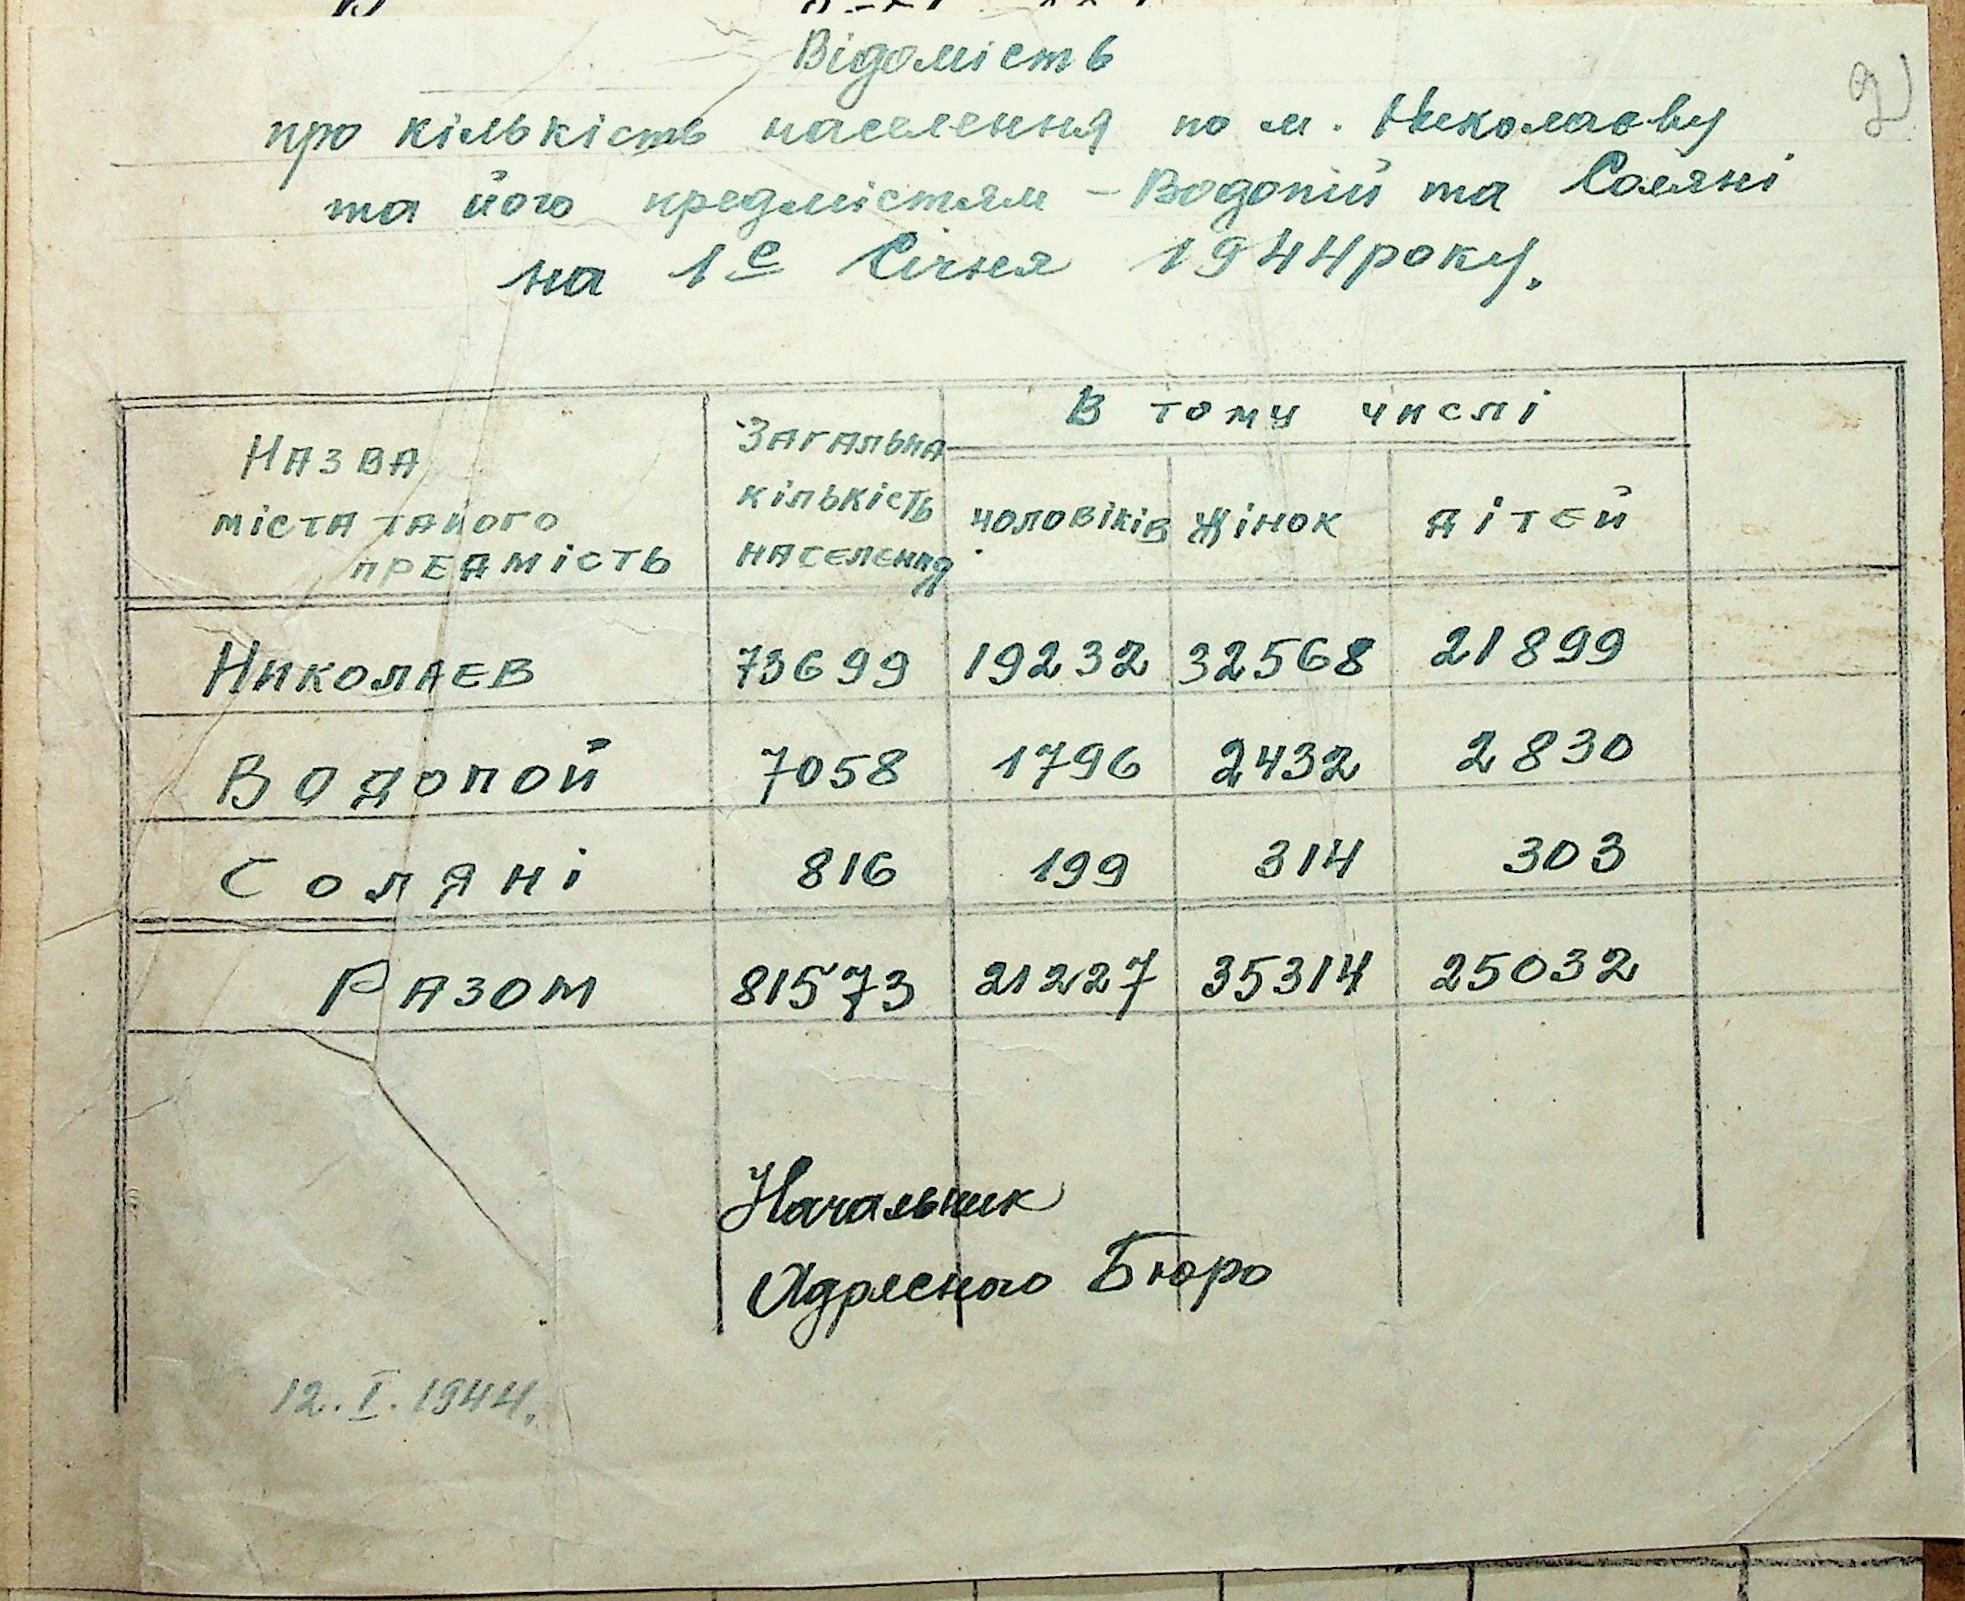 Відомість
про кількість населення по м. Николаєву
та його предмістям – Водопій та Соляні
на 1е Січня 1944 року.
Назва міста та його предмість
Загальна кількість населення
В тому числі
чоловіків жінок дітей
Николаєв 73699 19232 32568 21899
Водопой 7058 1796 2432 2830
Соляні 816 199 314 303
Разом 81573 21227 35314 25032
Начальник
Адресного Бюро
12.I.1944.